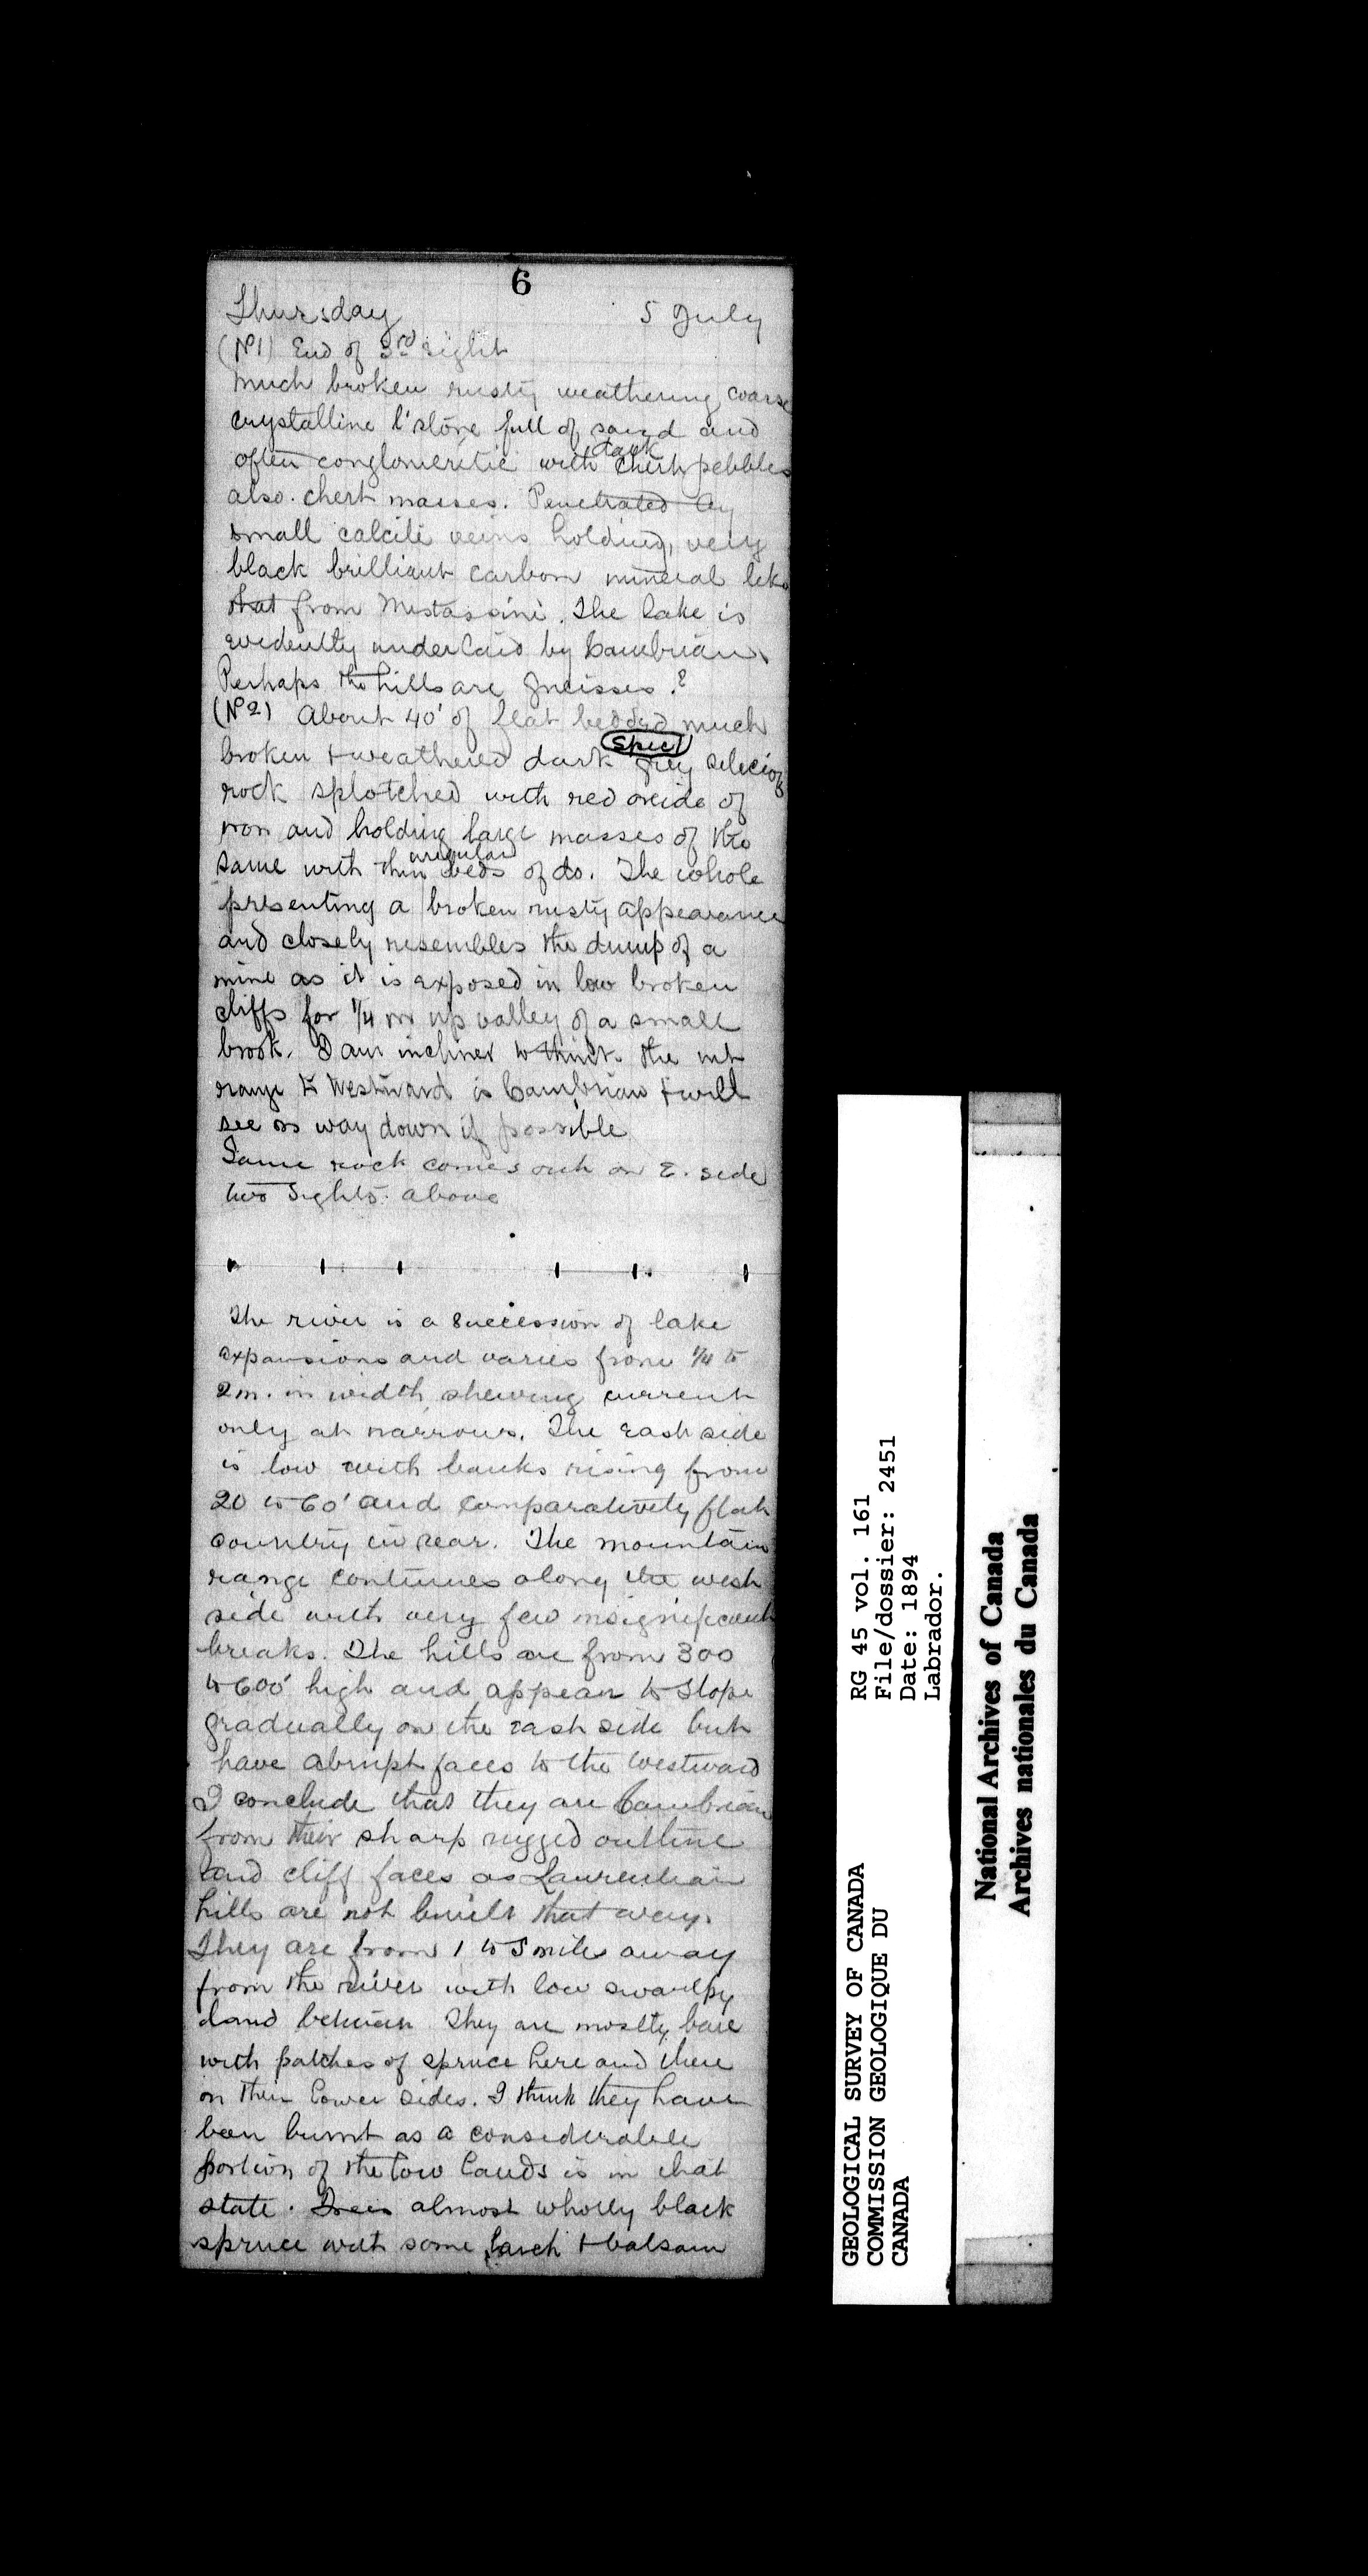 6
Thursday 5 July
(No 1) End of 3rd sight
Much broken rusty weathering coarse
crystalline l'stone full of sand and
often conglomeritic with dark chert pebbles
also chert masses. Penetrated by
small calcite veins holding, very
black brilliant carbon mineral like
that from Mistassini. The lake is
evidently underlaid by Cambrian.
Perhaps the hills are gneisses.?
(No 2) About 40' of flat bedded much
broken + weathered dark grey silicious
Spec
rock splotched with red oxide of
iron and holding large masses of the
same with thin irregular beds of do. The whole
presenting a broken rusty appearance
and closely resembles the dump of a
mine as it is exposed in low broken
cliffs for 1/4 m up valley of a small
brook. I am inclined to think the mt
range to Westward is Cambrian + will
see on way down if possible
Same rock comes out on E. side
two sights above
The river is a succession of lake
expansions and varies from 1/4 to
2 m. in width, shewing current
only at narrows. The east side
is low with banks rising from
20 to 60' and comparatively flat
country in rear. The mountain
range continues along the west
side with very few insignificant
breaks. The hills are from 300
to 600' high and appear to slope
gradually on the east side but
have abrupt faces to the westward
I conclude that they are Cambrian
from their sharp rugged outline
and cliff faces as Laurentian
hills are not built that way.
They are from 1 to 5 miles away
from the river with low swampy
land between They are mostly bare
with patches of spruce here and there
on their lower sides. I think they have
been burnt as a considerable
portion of the low lands is in that
state. Trees almost wholly black
spruce with some larch + balsam
GEOLOGICAL SURVEY OF CANADA
COMMISSION GEOLOGIQUE DU
CANADA
RG 45 vol. 161
File/dossier: 2451
Date: 1894
Labrador.
National Archives of Canada
Archives nationales du Canada